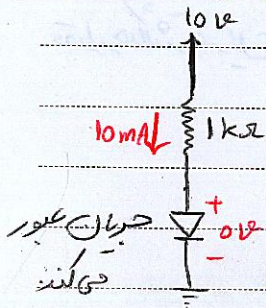 10 v
10mA
1kΩ
+
0v
-
جریان عبور
می کند